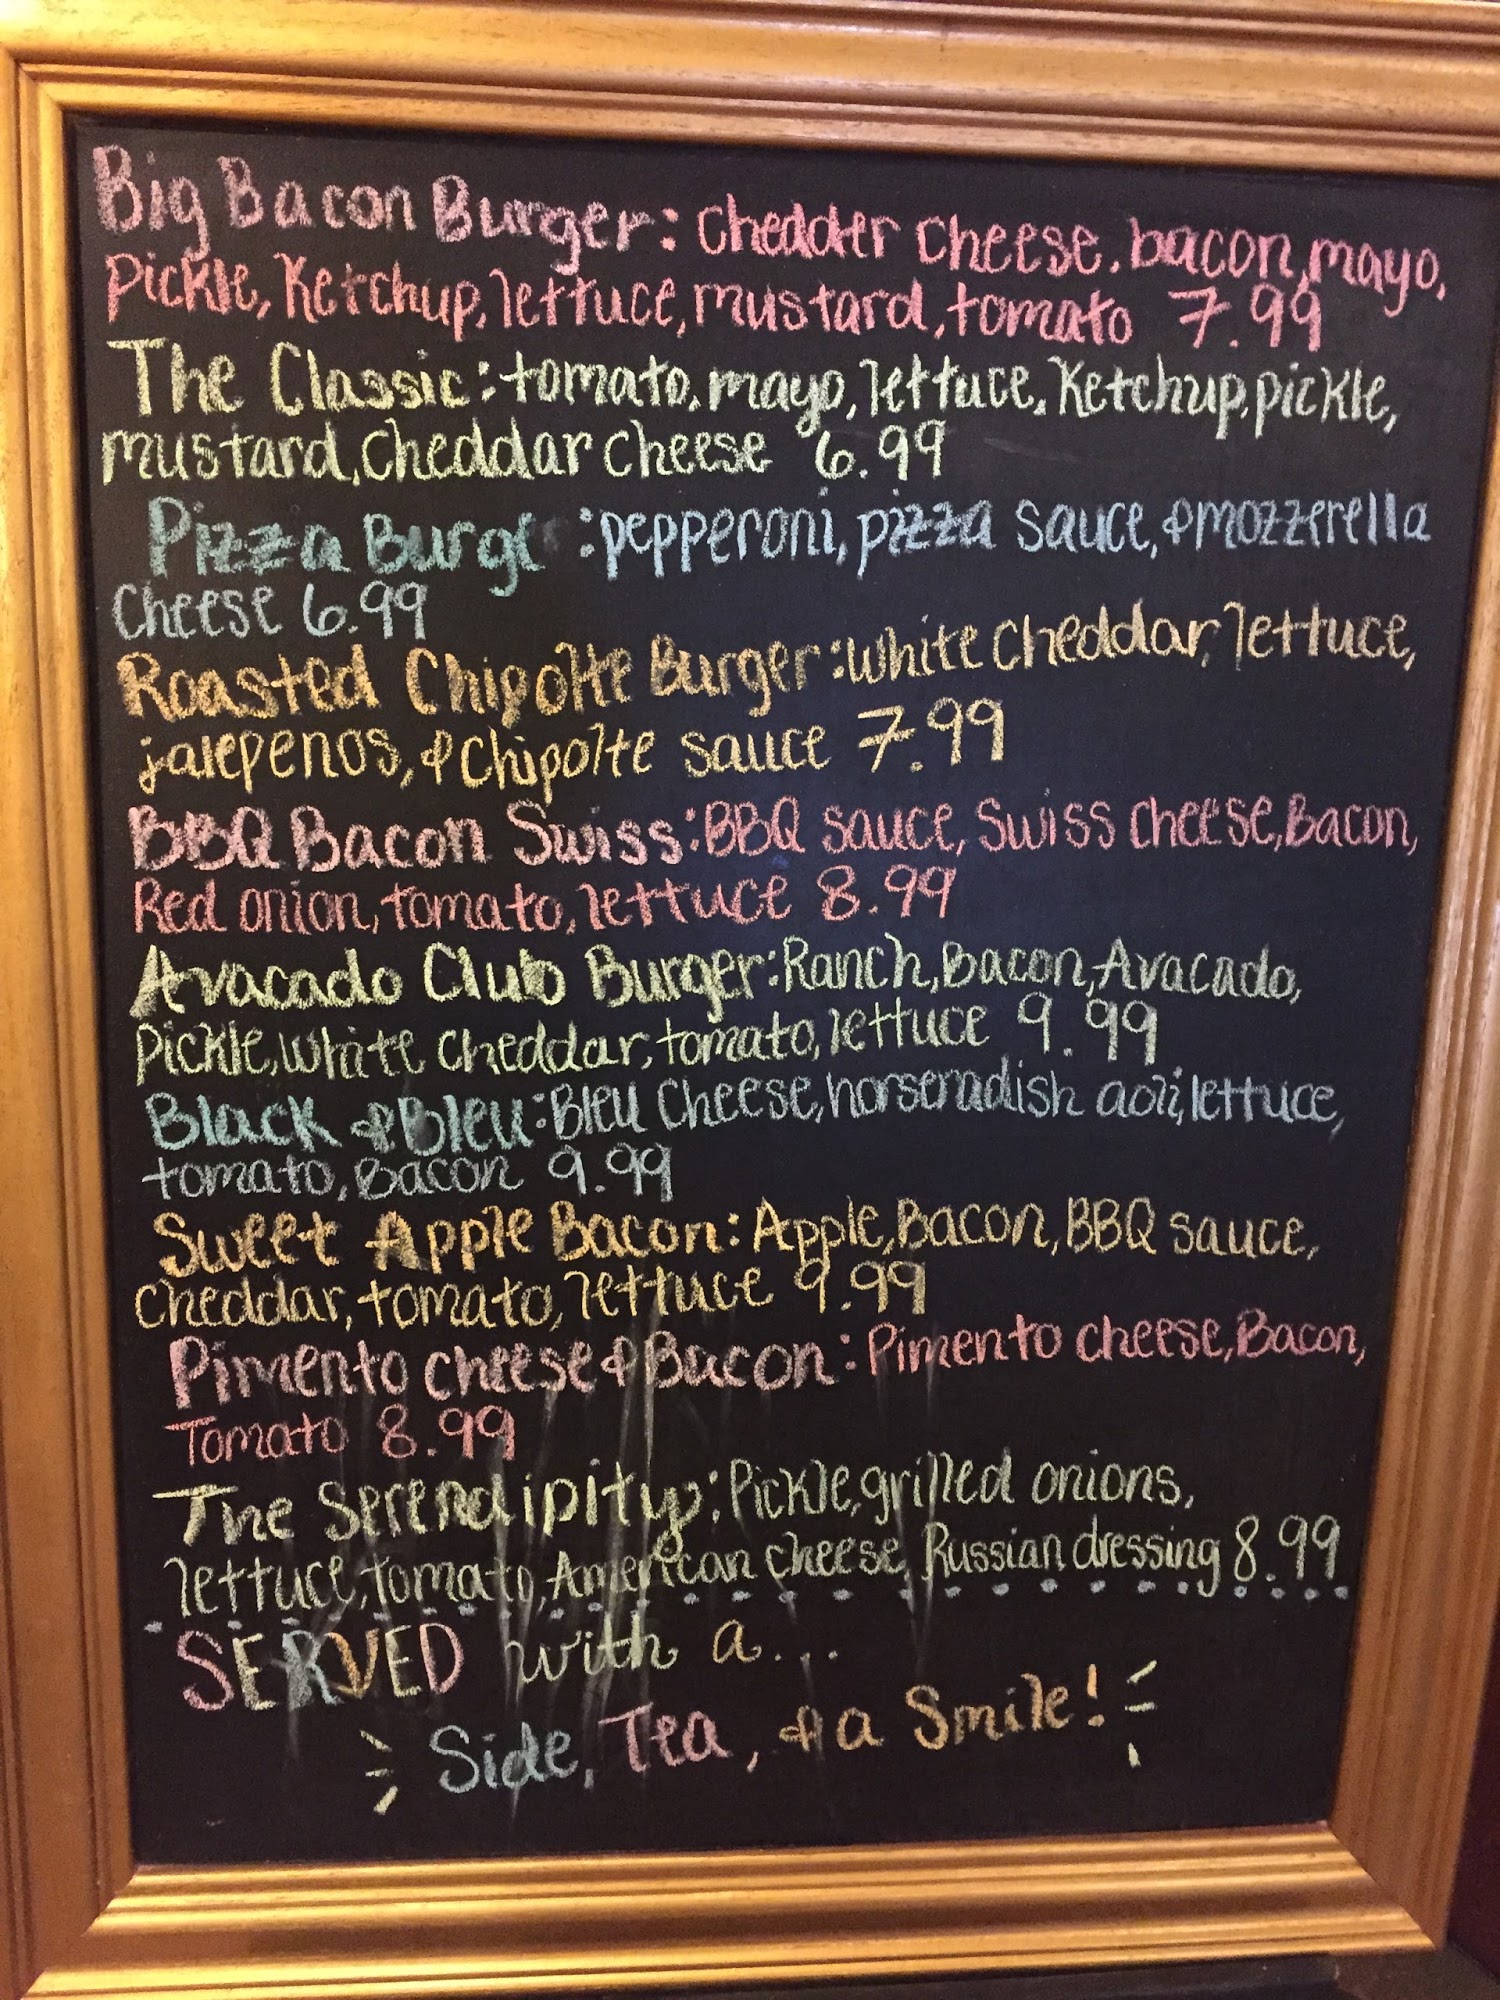 Big Bacon Burger: Chedder cheese, bacon, mayo,
Pickle, Ketchup, lettuce, mustard, tomato 7.99
The Classic: tomato, mayo, lettuce, Ketchup, pickle,
mustard, cheddar cheese 6.99
Pizza Burge : pepperoni, pizza sauce, & mozzerella
Cheese 6.99
Roasted Chipolte Burger: white cheddar, lettuce,
jalepenos, & chipolte sauce 7.99
BBQ Bacon Swiss: BBQ sauce, Swiss cheese, Bacon,
Red onion, tomato, lettuce 8.99
Avacado Club Burger: Ranch, Bacon, Avacado,
Pickle, white cheddar, tomato, lettuce 9.99
Black & Bleu: Bleu Cheese, horseradish aoli, lettuce,
tomato, Bacon 9.99
Sweet Apple Bacon: Apple, Bacon, BBQ sauce,
cheddar, tomato, lettuce 9.99
Pimento cheese & Bacon: Pimento cheese, Bacon,
Tomato 8.99
The Serendipity: Pickle, grilled onions,
lettuce, tomato, American cheese, Russian dressing 8.99
SERVED with a...
Side, Tea, & a Smile!